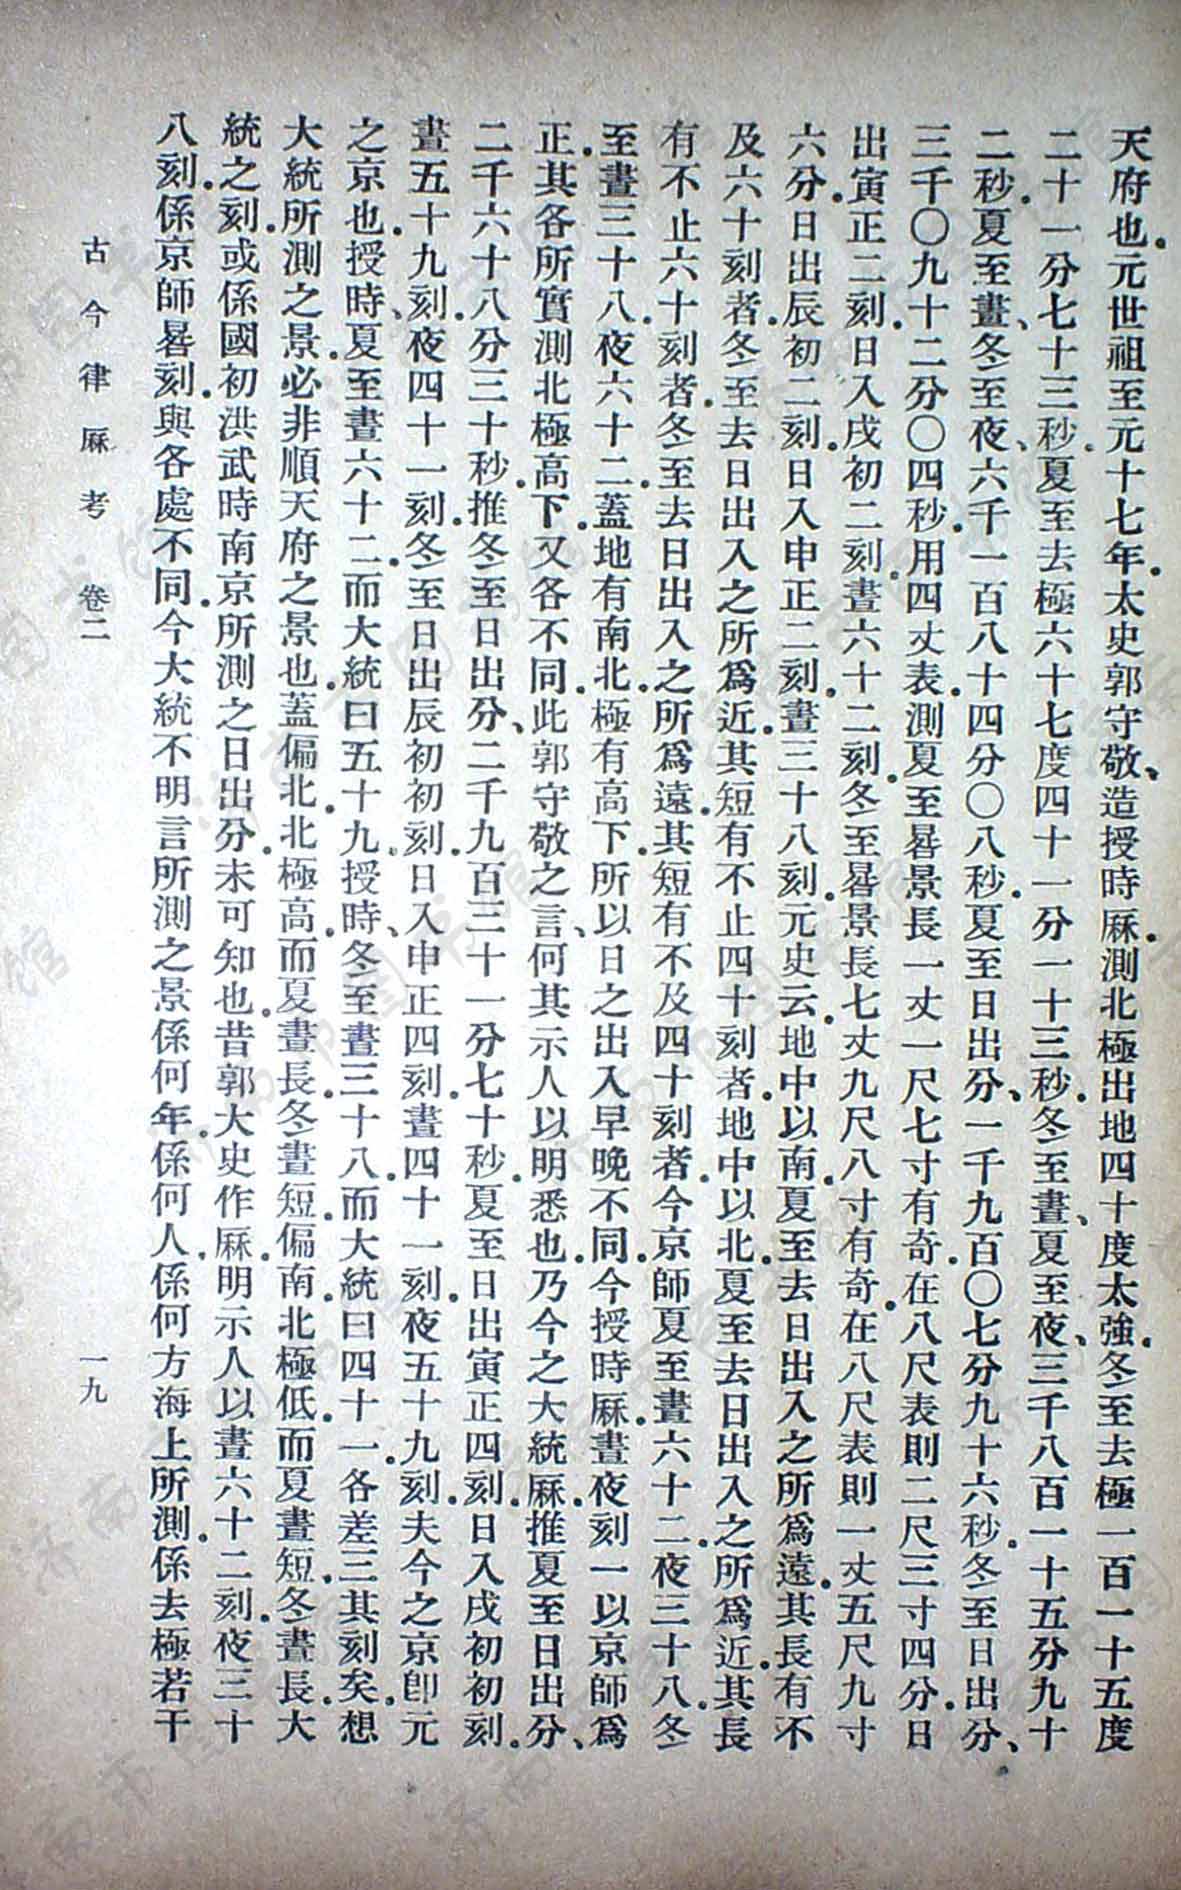 天府也。元世祖至元十七年。太史郭守敬、造授時厤。測北極出地四十度太強。冬至去極一百一十五度
二十一分七十三秒。夏至去極六十七度四十一分一十三秒。冬至晝、夏至夜、三千八百一十五分九十
二秒。夏至晝、冬至夜、六千一百八十四分〇八秒。夏至日出分、一千九百〇七分九十六秒。冬至日出分、
三千〇九十二分〇四秒。用四丈表。測夏至晷景長一丈一尺七寸有奇。在八尺表則二尺三寸四分。日
出寅正二刻。日入戌初二刻。晝六十二刻。冬至晷景長七丈九尺八寸有奇。在八尺表則一丈五尺九寸
六分。日出辰初二刻。日入申正二刻。晝三十八刻。元史云。地中以南。夏至去日出入之所爲遠。其長有不
及六十刻者。冬至去日出入之所爲近。其短有不止四十刻者。地中以北。夏至去日出入之所爲近。其長
有不止六十刻者。冬至去日出入之所爲遠。其短有不及四十刻者。今京師夏至晝六十二。夜三十八。冬
至晝三十八。夜六十二。蓋地有南北。極有高下。所以日之出入早晚不同。今授時厤。晝夜刻一以京師爲
正。其各所實測北極高下。又各不同。此郭守敬之言、何其示人以明悉也。乃今之大統厤。推夏至日出分、
二千六十八分三十秒。推冬至日出分、二千九百三十一分七十秒。夏至日出寅正四刻。日入戌初初刻。
晝五十九刻。夜四十一刻。冬至日出辰初初刻。日入申正四刻。晝四十一刻。夜五十九刻。夫今之京卽元
之京也。授時、夏至晝六十二。而大統曰五十九。授時、冬至晝三十八。而大統曰四十一。各差三其刻矣。想
大統所測之景。必非順天府之景也。蓋偏北。北極高。而夏晝長。冬晝短。偏南。北極低。而夏晝短。冬晝長。大
統之刻。或係國初洪武時南京所測之日出分。未可知也。昔郭大史作厤。明示人以晝六十二刻。夜三十
八刻。係京師晷刻。與各處不同。今大統不明言所測之景係何年。係何人。係何方海上所測。係去極若干
古今律厤考 卷二 一九